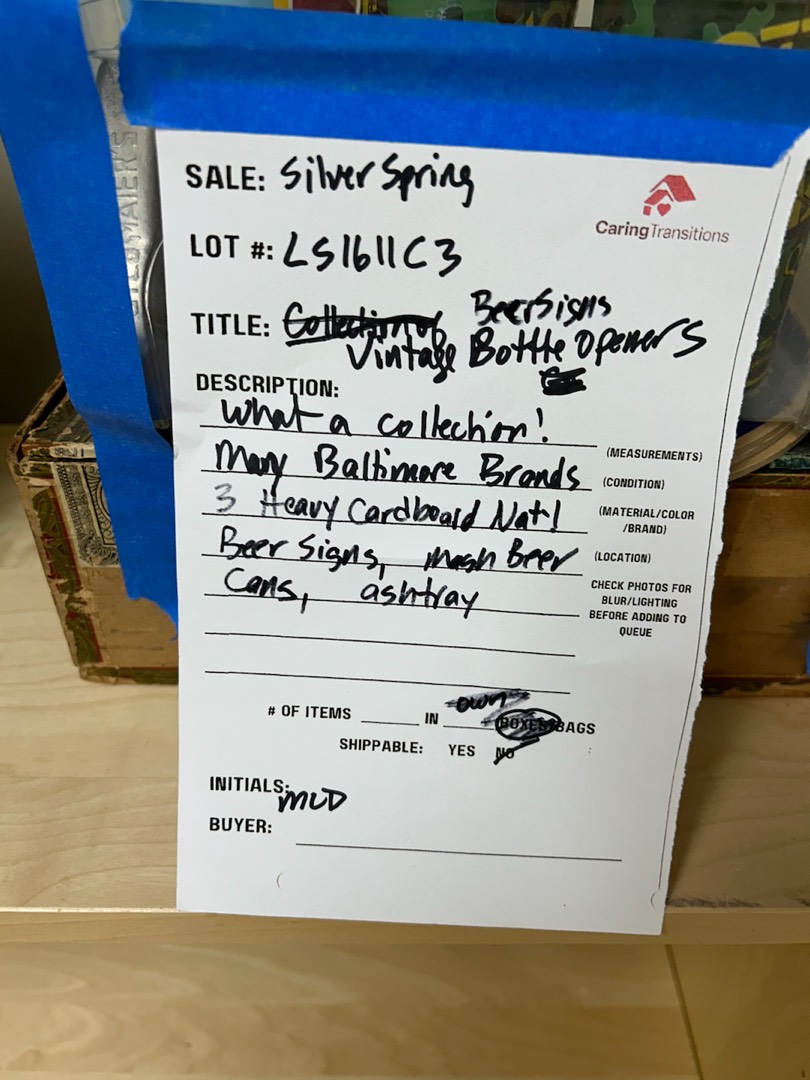 SALE: Silver Spring
CaringTransitions
LOT #: LS1611C3
TITLE: Collection of Beer Signs
Vintage Bottle Openers
DESCRIPTION:
What a collection!
(MEASUREMENTS)
Many Baltimore Brands
(CONDITION)
3 Heavy Cardboard Nat'l
(MATERIAL/COLOR
/BRAND)
Beer Signs, mash Beer
(LOCATION)
Cans, ashtray
CHECK PHOTOS FOR
BLUR/LIGHTING
BEFORE ADDING TO
QUEUE
# OF ITEMS IN own BOXES/BAGS
SHIPPABLE: YES NO
INITIALS: MCD
BUYER: